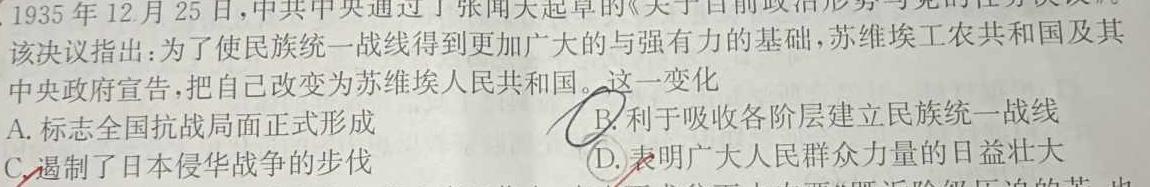 1935年12月25日,中共中央通过了张闻天起草的《关于目前政治形势与党的任务决议》。
该决议指出:为了使民族统一战线得到更加广大的与强有力的基础,苏维埃工农共和国及其
中央政府宣告,把自己改变为苏维埃人民共和国。这一变化
A. 标志全国抗战局面正式形成
B. 利于吸收各阶层建立民族统一战线
C. 遏制了日本侵华战争的步伐
D. 表明广大人民群众力量的日益壮大